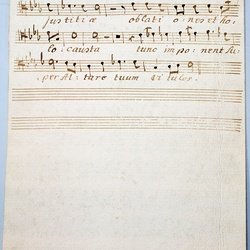 justitiæ oblati o nes et ho,
lo causta tunc impo nent su,
per Alt: tare tuum vi tulos.